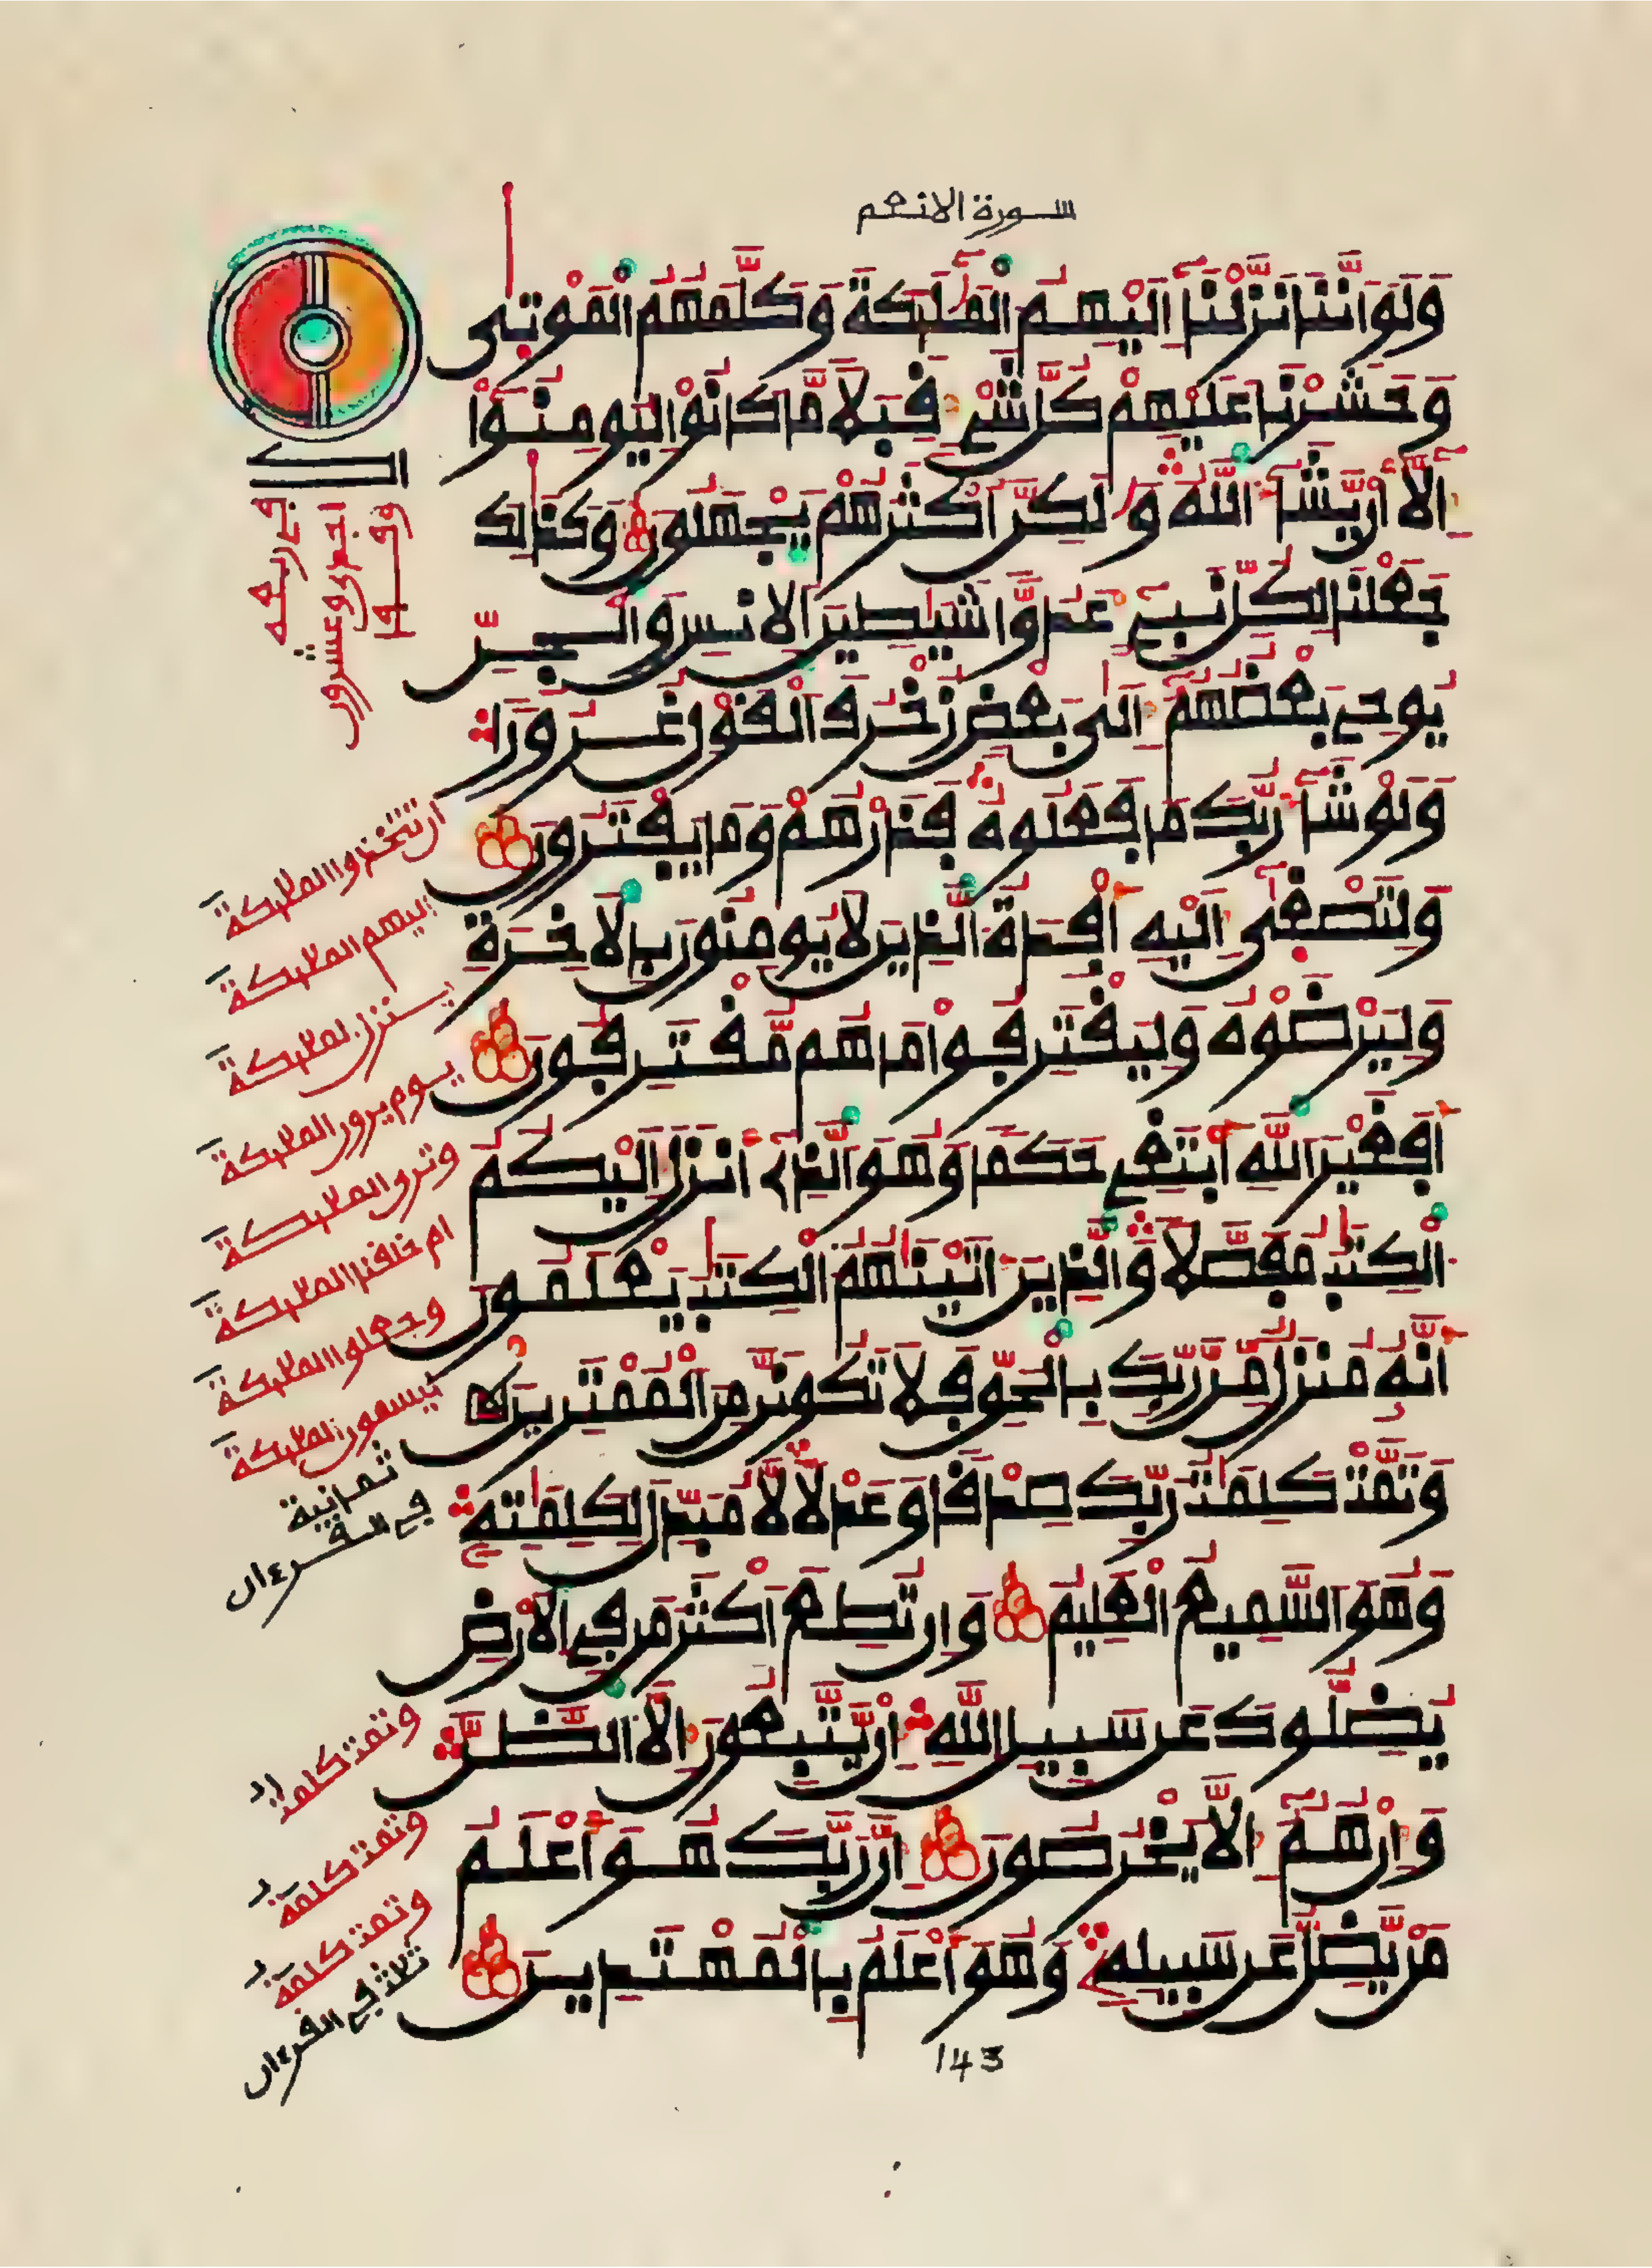 سورة الانعم
وَلَوَ اَنَّنَا نَزَّلْنَا إِلَيْهِمُ الْمَلَٰٓئِكَةَ وَكَلَّمَهُمُ الْمَوْتىٰ
وَحَشَرْنَا عَلَيْهِمْ كُلَّ شَےْءٖ قِبَلاٗ مَّا كَانُواْ لِيُومِنُوٓاْ
إِلَّآ أَنْ يَّشَآءَ اَللَّهُ وَلَٰكِنَّ أَكْثَرَهُمْ يَجْهَلُونَ وَكَذَٰلِكَ
جَعَلْنَا لِكُلِّ نَبِےٓءٍ عَدُوّاٗ شَيَٰطِينَ اَلِانسِ وَالْجِنِّ
يُوحِے بَعْضُهُمُۥٓ إِلَىٰ بَعْضٖ زُخْرُفَ اَلْقَوْلِ غُرُوراٗ
وَلَوْ شَآءَ رَبُّكَ مَا فَعَلُوهُ فَذَرْهُمْ وَمَا يَفْتَرُونَ
وَلِتَصْغىٰٓ إِلَيْهِ أَفْـِٕدَةُ اُلذِينَ لَا يُومِنُونَ بِالَاخِرَةِ
وَلِيَرْضَوْهُ وَلِيَقْتَرِفُواْ مَا هُم مُّقْتَرِفُونَ
أَفَغَيْرَ اَللَّهِ أَبْتَغِے حَكَماٗ وَهُوَ اَلذِےٓ أَنزَلَ إِلَيْكُمُ
الْكِتَٰبَ مُفَصَّلاٗ وَالذِينَ ءَاتَيْنَٰهُمُ الْكِتَٰبَ يَعْلَمُونَ
أَنَّهُۥ مُنزَلٞ مِّن رَّبِّكَ بِالْحَقِّ فَلَا تَكُونَنَّ مِنَ اَلْمُمْتَرِينَ
وَتَمَّتْ كَلِمَٰتُ رَبِّكَ صِدْقاٗ وَعَدْلاٗ لَّا مُبَدِّلَ لِكَلِمَٰتِهِۦ
وَهُوَ اَلسَّمِيعُ الْعَلِيمُ وَإِن تُطِعَ اَكْثَرَ مَن فِے اِلَارْضِ
يُضِلُّوكَ عَن سَبِيلِ اِللَّهِ إِنْ يَّتَّبِعُونَ إِلَّا اَلظَّنَّ
وَإِنْ هُمُۥٓ إِلَّا يَخْرُصُونَ إِنَّ رَبَّكَ هُوَ أَعْلَمُ
مَنْ يَّضِلُّ عَن سَبِيلِهِۦ وَهُوَ أَعْلَمُ بِالْمُهْتَدِينَ
143
فى ربعه
احدى وعشرون
وقفا
ان تتخذوا الملئكة
اليهم الملئكة
ينزل الملئكة
يوم يرون الملئكة
وترى الملئكة
ام خلقنا الملئكة
وجعلوا الملئكة
ليسمون الملئكة
ثمانية
فى القرءان
وتمت كلمت
وتمت كلمة
وتمت كلمة
ثلاث فى القرءان